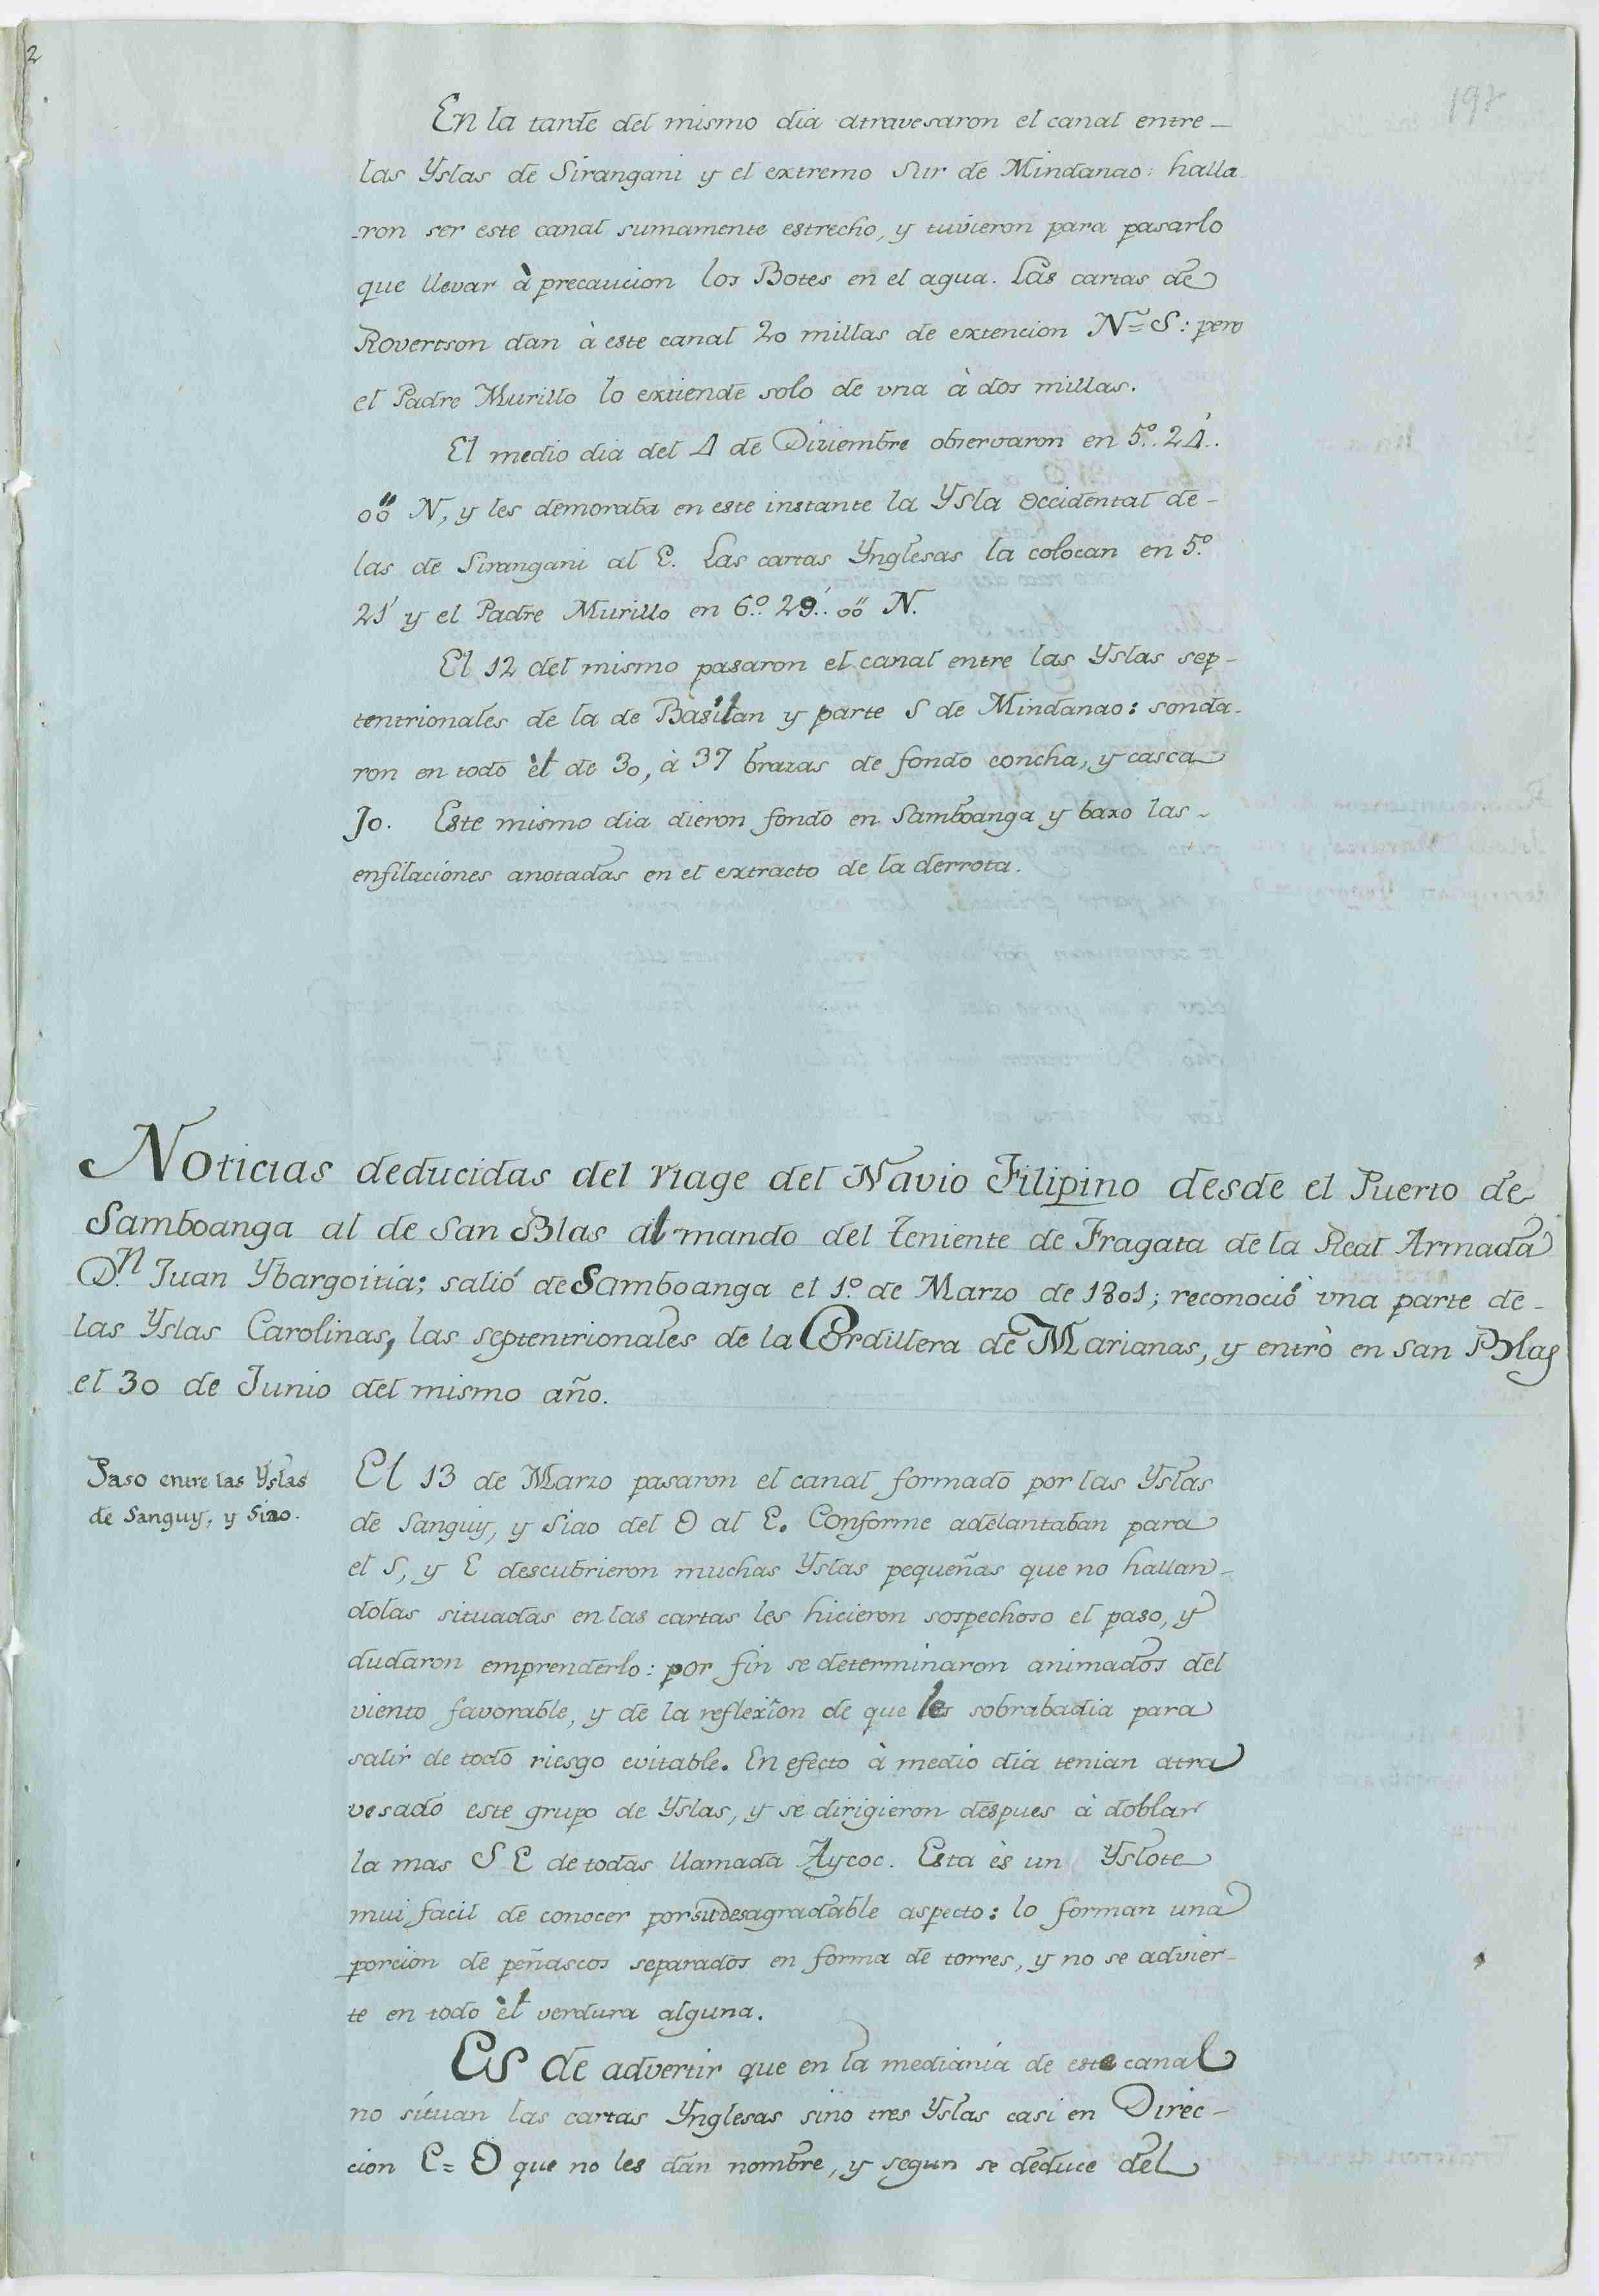 2
197
En la tarde del mismo dia atravesaron el canal entre
las Yslas de Sirangani y el extremo Sur de Mindanao: halla
-ron ser este canal sumamente estrecho, y tuvieron para pasarlo
que llevar à precaucion los Botes en el agua. Las cartas de
Rovertson dan à este canal 20 millas de extencion N=S: pero
el Padre Murillo lo extiende solo de vna à dos millas.
El medio dia del 4 de Diziembre observaron en 5.º 24'.
00" N, y les demoraba en este instante la Ysla Occidental de-
las de Sirangani al E. Las cartas Ynglesas la colocan en 5.º
21' y el Padre Murillo en 6.º 29'. 00" N.
El 12 del mismo pasaron el canal entre las Yslas sep-
tentrionales de la de Basilan y parte S de Mindanao: sonda-
ron en todo èl de 30, à 37 brazas de fondo concha, y casca
Jo. Este mismo dia dieron fondo en Samboanga y baxo las
enfilaciones anotadas en el extracto de la derrota.
Noticias deducidas del viage del Navio Filipino desde el Puerto de
Samboanga al de San Blas al mando del Teniente de Fragata de la Real Armada
D.n Juan Ybargoitia; salió de Samboanga el 1.º de Marzo de 1801; reconoció vna parte de-
las Yslas Carolinas, las septentrionales de la Cordillera de Marianas, y entrò en San Blas
el 30 de Junio del mismo año.
Paso entre las Yslas
de Sanguy, y Siao.
El 13 de Marzo pasaron el canal formado por las Yslas
de Sanguy, y Siao del O al E. Conforme adelantaban para
el S, y E descubrieron muchas Yslas pequeñas que no hallan-
dolas situadas en las cartas les hicieron sospechoso el paso, y
dudaron emprenderlo: por fin se determinaron animados del
viento favorable, y de la reflexîon de que les sobrabadia para
salir de todo riesgo evitable. En efecto à medio dia tenian atra
vesado este grupo de Yslas, y se dirigieron despues à doblar
la mas S E de todas llamada Aycoc. Esta ès un Yslote
mui facil de conocer por su desagradable aspecto: lo forman una
porcion de peñascos separados en forma de torres, y no se advier-
te en todo èl verdura alguna.
Es de advertir que en la mediania de este canal
no sítuan las cartas Ynglesas sino tres Yslas casi en Direc-
cion E=O que no les dán nombre, y segun se deduce del